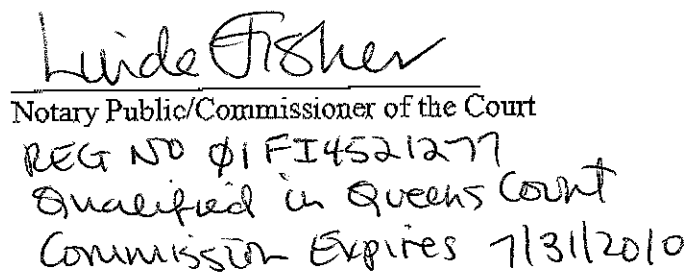 Linda Fisher
Notary Public/Commissioner of the Court
REG NO 01FI4521277
Qualified in Queens Count
Commission Expires 7/31/2010